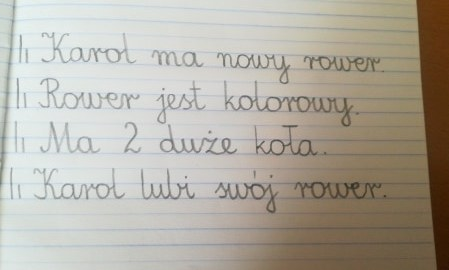 Karol ma nowy rower.
Rower jest kolorowy.
Ma 2 duże koła.
Karol lubi swój rower.